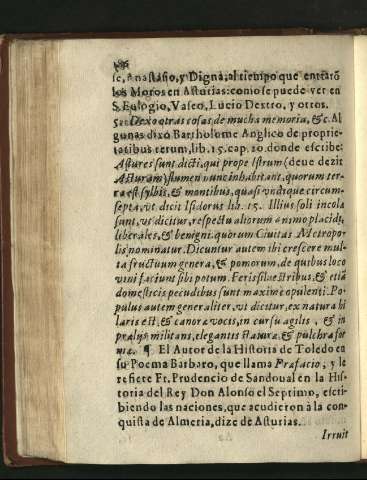 se, Anastasio, y Digna, al tiempo que entrarõ
los Moros en Asturias: como se puede ver en
S. Eulogio, Vaseo, Lucio Dextro, y otros.
Dexo otras cosas de mucha memoria, & c. Al
gunas dixo Bartholome Anglico de proprie-
tatibus rerum, lib. 15. cap. 20. donde escribe:
Astures sunt dicti, qui prope Istrum (deve dezir
Asturam) flumen nunc inhabitant, quorum ter-
ra est sylvis, & montibus, quasi vndique circum-
septa, vt dicit Isidorus lib. 15. Illius soli incola
sunt, vt dicitur, respectu aliorum animo placidi,
liberales, & benigni: quorum Ciuitas Metropo-
lis nominatur. Dicuntur autem ibi crescere mul-
ta fructuum genera, & pomorum, de quibus loco
vini faciunt sibi potum. Feris siluestribus, & etiã
domesticis pecudibus sunt maxime opulenti. Po-
pulus autem generaliter, vt dicitur, ex natura hi
laris est, & canoræ vocis, in cursu agilis, & in
prælijs militans, elegantis staturæ, & pulchræ for
mæ. ¶ El Autor de la Historia de Toledo en
su Poema Barbaro, que llama Prafacio, y le
refiere Fr. Prudencio de Sandoual en la His-
toria del Rey Don Alonso el Septimo, escri-
biendo las naciones, que acudieron à la con-
quista de Almeria, dize de Asturias.
Irruit